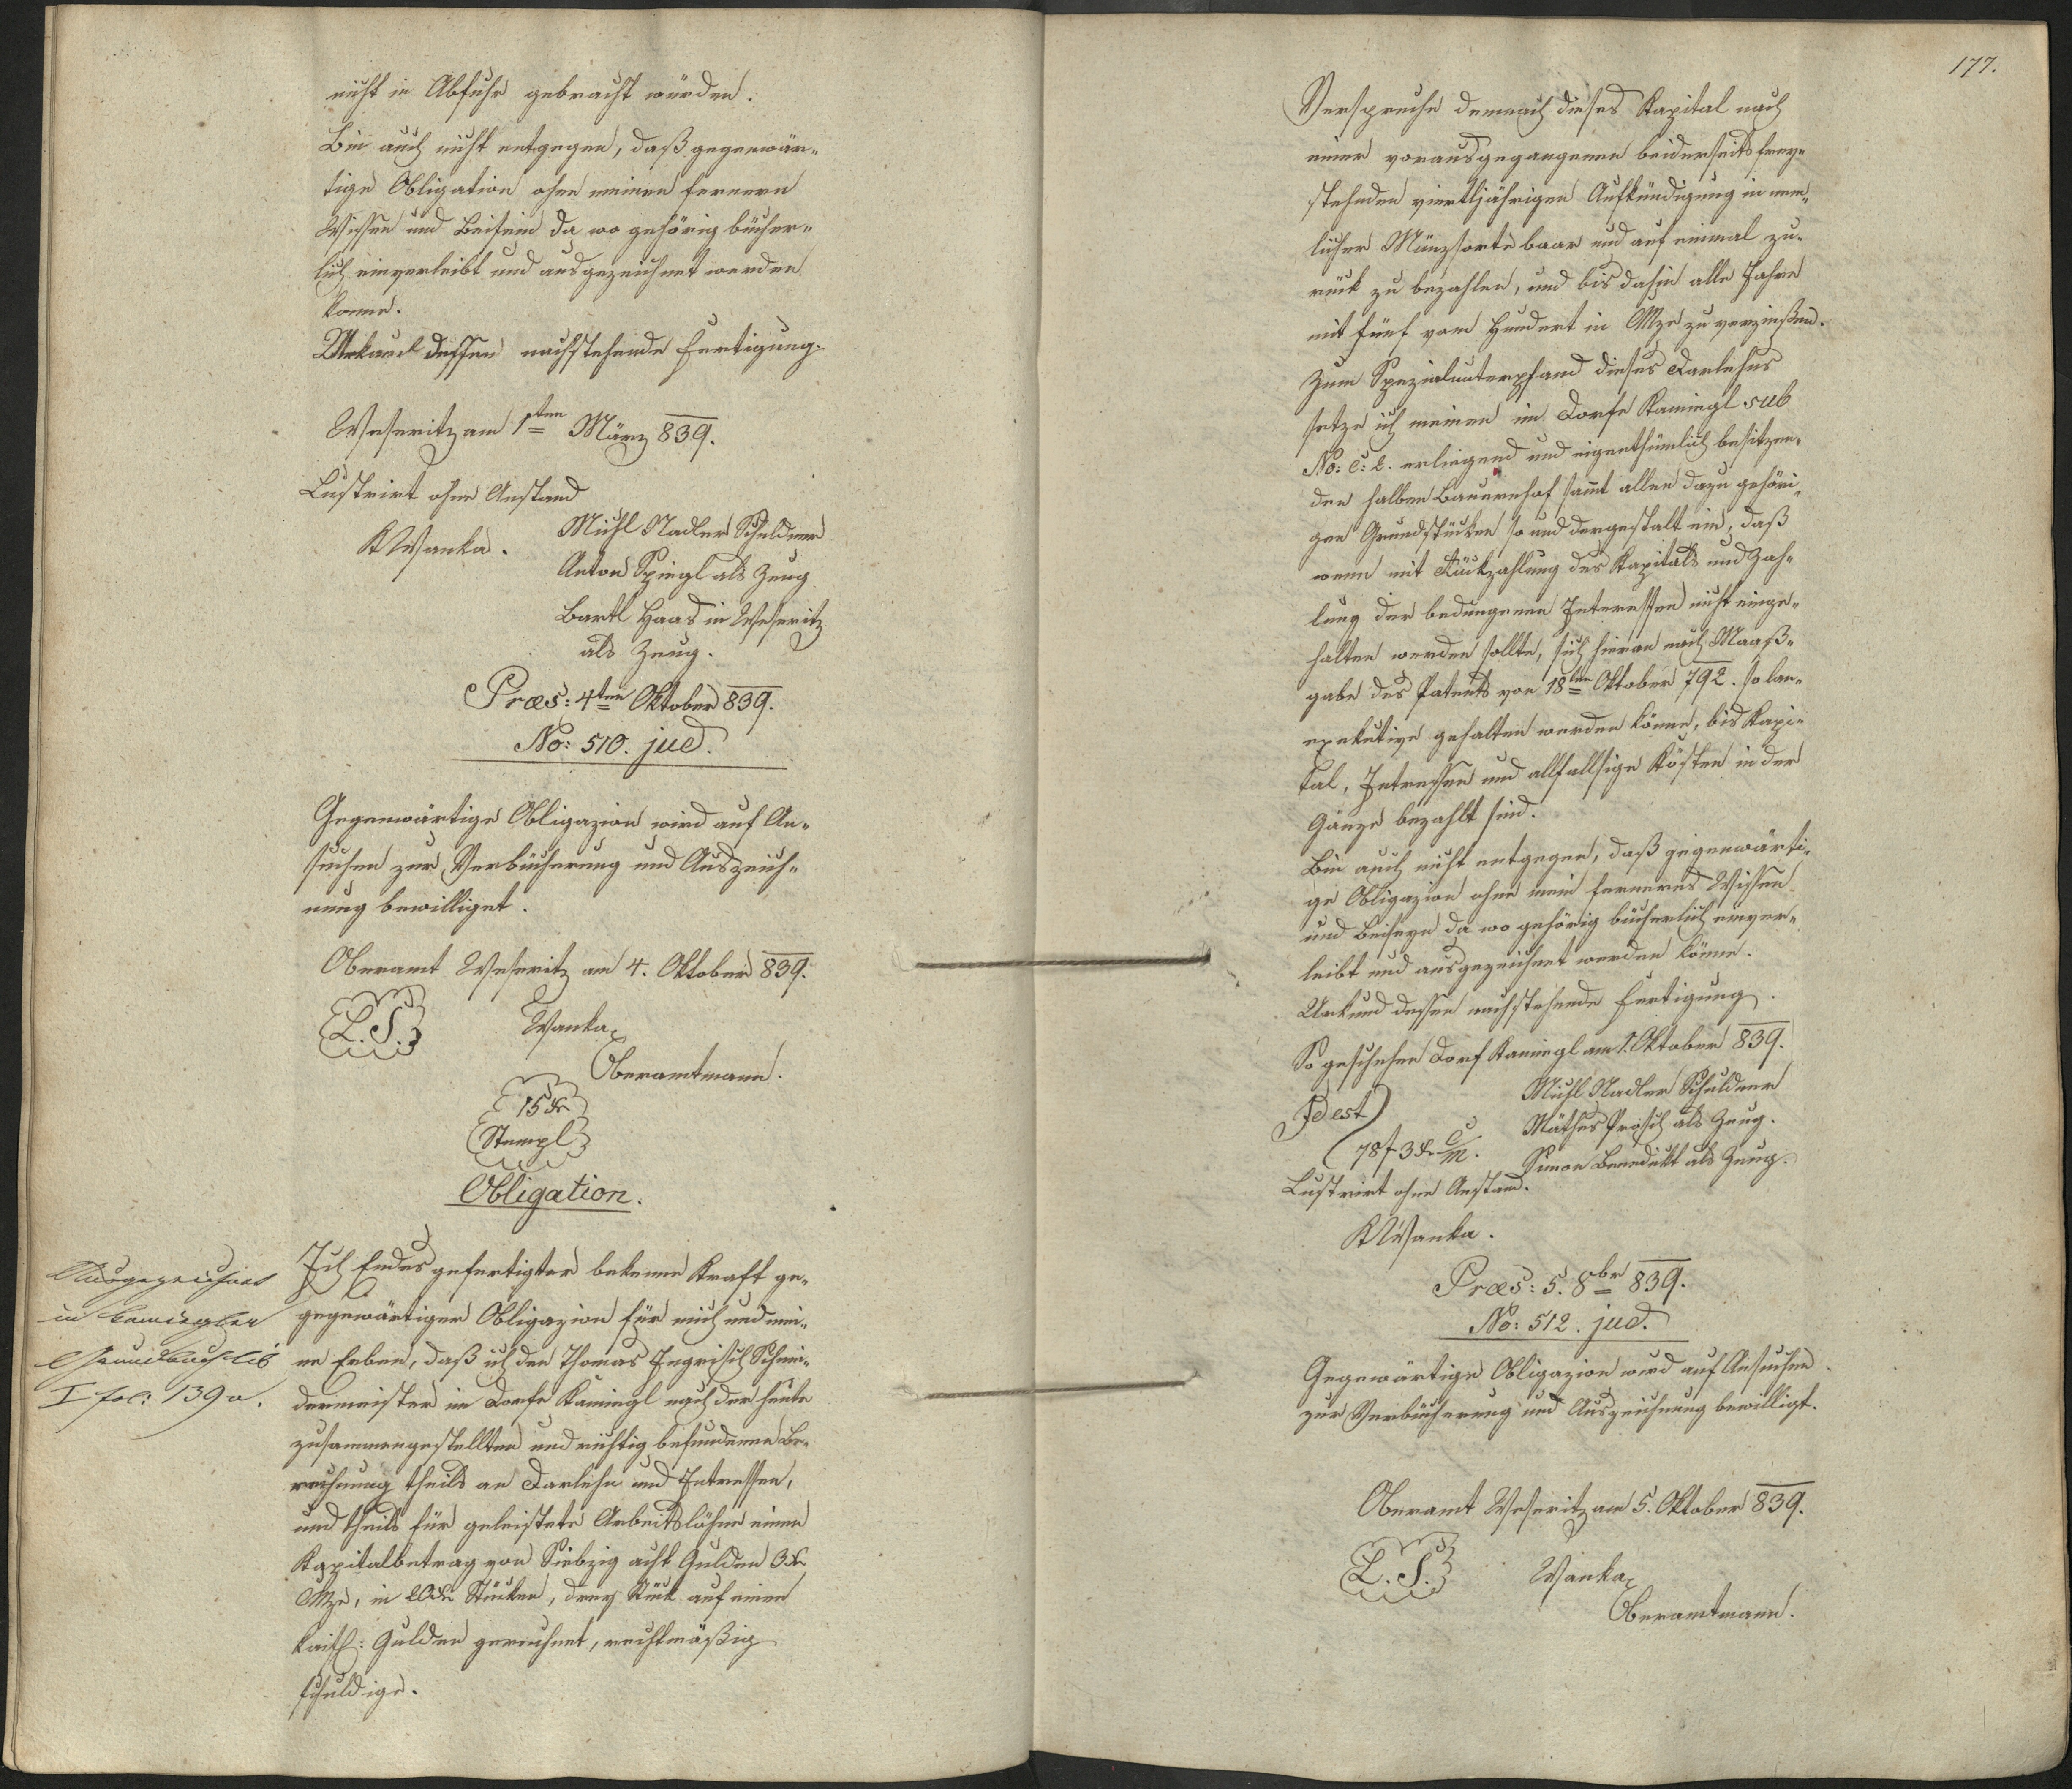 nicht in Abfuhr gebracht würden.
Bin auch nicht entgegen, daß gegenwär-
tige Obligation ohne meinen fernern
Wissen und Beisein da wo gehörig bücher-
lich einverleibt und ausgezeichnet werden
könne.
Urkund dessen nachstehende Fertigung.
Weseritz am 1ten März 839.
Lustrirt ohne Anstand
KWanka.
Michl Nadler Schuldner
Anton Spiegl als Zeug
Bartl Haas in Weseritz
als Zeug.
Præs: 4ten Oktober 839.
No: 510. jud.
Gegenwärtige Obligazion wird auf An-
suchen zur Verbücherung und Auszeich-
nung bewilliget.
Oberamt Weseritz am 4. Oktober 839.
L. S.
Wanka
Oberamtmann.
15 xr
Stempl
Obligation.
Ausgezeichnet
in Kamiegler
Grundbuch lib
I fol: 139 v.
Ich Endesgefertigter bekenne Kraft ge-
gegewärtiger Obligazion für mich und mei-
ne Erben, daß ich den Thomas Ingrisch Schnei-
dermeister im Dorfe Kamiegl nach der heute
zusammengestellten und richtig befundenen Be-
rechnung theils an Darlehn und Intressen,
und theils für geleistete Arbeitslöhne einen
Kapitalbetrag von Siebzig acht Gulden 3 xr
Mze, in 20 xr Stücken, drey Stück auf einen
kais: Gulden gerechnet, rechtmäßig
schuldige.
177.
Verspreche demnach dieses Kapital nach
einer vorausgegangenen beiderseits frey-
stehenden vierteljährigen Aufkündigung in nem-
licher Münzsorte baar und auf einmal zu-
rück zu bezahlen, und bis dahin alle Jahre
mit fünf vom Hundert in Mze zu verzinßen.
Zum Spezialunterpfand dieses Darlehns
setze ich meinen im Dorfe Kamiegl sub
No: C: 2. erliegend und eigenthümlich besitzen-
den halben Bauernhof samt allen dazu gehöri-
gen Grundstücken so und dergestalt ein, daß
wenn mit Rückzahlung des Kapitals und Zah-
lung der bedungenen Interessen nicht einge-
halten werden sollte, sich hieran nach Maaß-
gabe des Patents von 18ten Oktober 792. so lan-
exekutive gehalten werden könne, bis Kapi-
tal, Intressen und allfallsige Kösten in der
Gänze bezahlt sind.
Bin auch nicht entgegen, daß gegenwärti-
ge Obligazion ohne mein ferneres Wissen
und Beiseyn da wo gehörig bücherlich einver-
leibt und ausgezeichnet werden könne.
Urkund dessen nachstehende Fertigung.
So geschehen Dorf Kamiegl am 1. Oktober 839.
Idest
78 f 3 xr C/m.
Michl Nadler Schuldner
Mathes Prosch als Zeug.
Simon Benedikt als Zeug.
Lustrirt ohne Anstand.
KWanka.
Præs: 5. 8br 839.
No: 512. jud.
Gegewärtige Obligazion wird auf Ansuchen
zur Verbücherung und Auszeichnung bewilligt.
Oberamt Weseritz am 5. Oktober 839.
L. S.
Wanka
Oberamtmann.